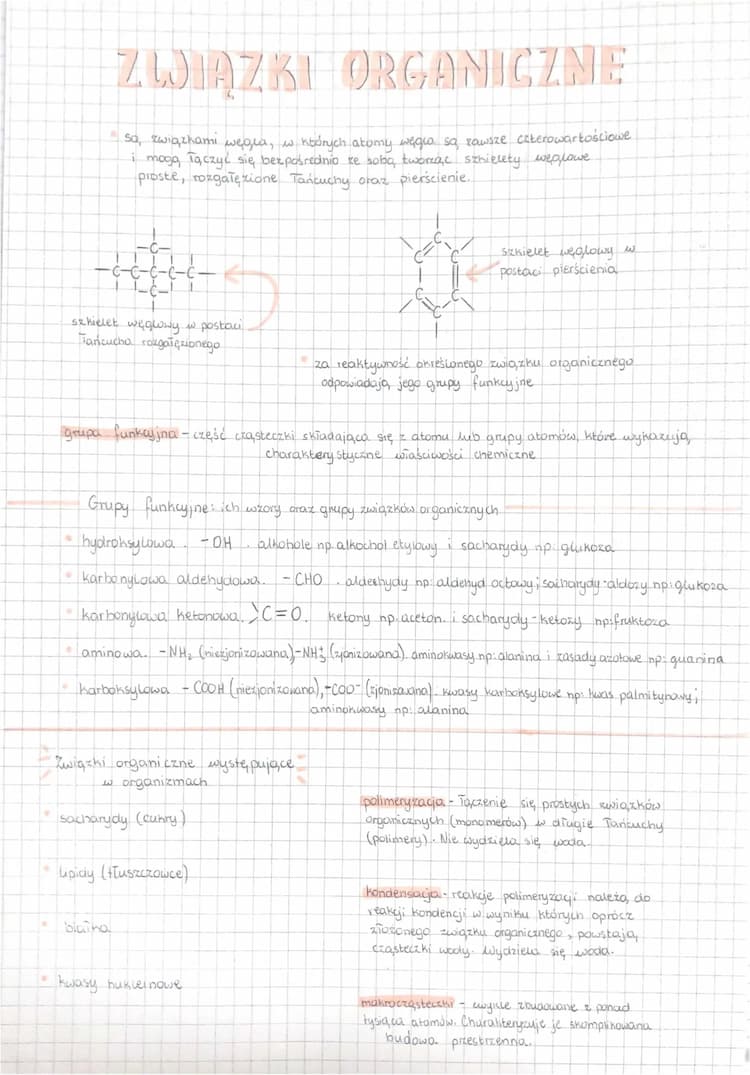 ZWIĄZKI ORGANICZNE
są związkami węgla, w których atomy węgla są zawsze czterowartościowe
i mogą łączyć się bezpośrednio ze sobą tworząc szkielety węglowe
proste, rozgałęzione łańcuchy oraz pierścienie.
-C-
-C-C-C-C-C-
-C-
szkielet węglowy w postaci
łańcucha rozgałęzionego
C
C C
C C
C
szkielet węglowy w
postaci pierścienia
za reaktywność określonego związku organicznego
odpowiadają jego grupy funkcyjne
grupa funkcyjna - część cząsteczki składająca się z atomu lub grupy atomów, które wykazują
charakterystyczne właściwości chemiczne
Grupy funkcyjne: ich wzory oraz grupy związków organicznych
hydroksylowa. -OH. alkohole np. alkochol etylowy i sacharydy np: glukoza
karbonylowa aldehydowa. -CHO. aldehydy np: aldehyd octowy; sacharydy-aldozy np: glukoza
karbonylowa ketonowa. >C=O. ketony np. aceton. i sacharydy-ketozy np: fruktoza
aminowa. -NH₂ (niezjonizowana)-NH₃⁺ (zjonizowana). aminokwasy np: alanina i zasady azotowe np: guanina
karboksylowa -COOH (niezjonizowana), -COO⁻ (zjonizowana). kwasy karboksylowe np: kwas palmitynowy;
aminokwasy np: alanina
Związki organiczne występujące
w organizmach
sacharydy (cukry)
lipidy (tłuszczowce)
białka
kwasy nukleinowe
polimeryzacja - łączenie się prostych związków
organicznych (monomerów) w długie łańcuchy
(polimery). Nie wydziela się woda.
kondensacja - reakcje polimeryzacji należą do
reakcji kondencji w wyniku których oprócz
złożonego związku organicznego, powstają
cząsteczki wody. Wydziela się woda.
makrocząsteczki - zwykle zbudowane z ponad
tysiąca atomów. Charakteryzuje je skomplikowana
budowa przestrzenna.